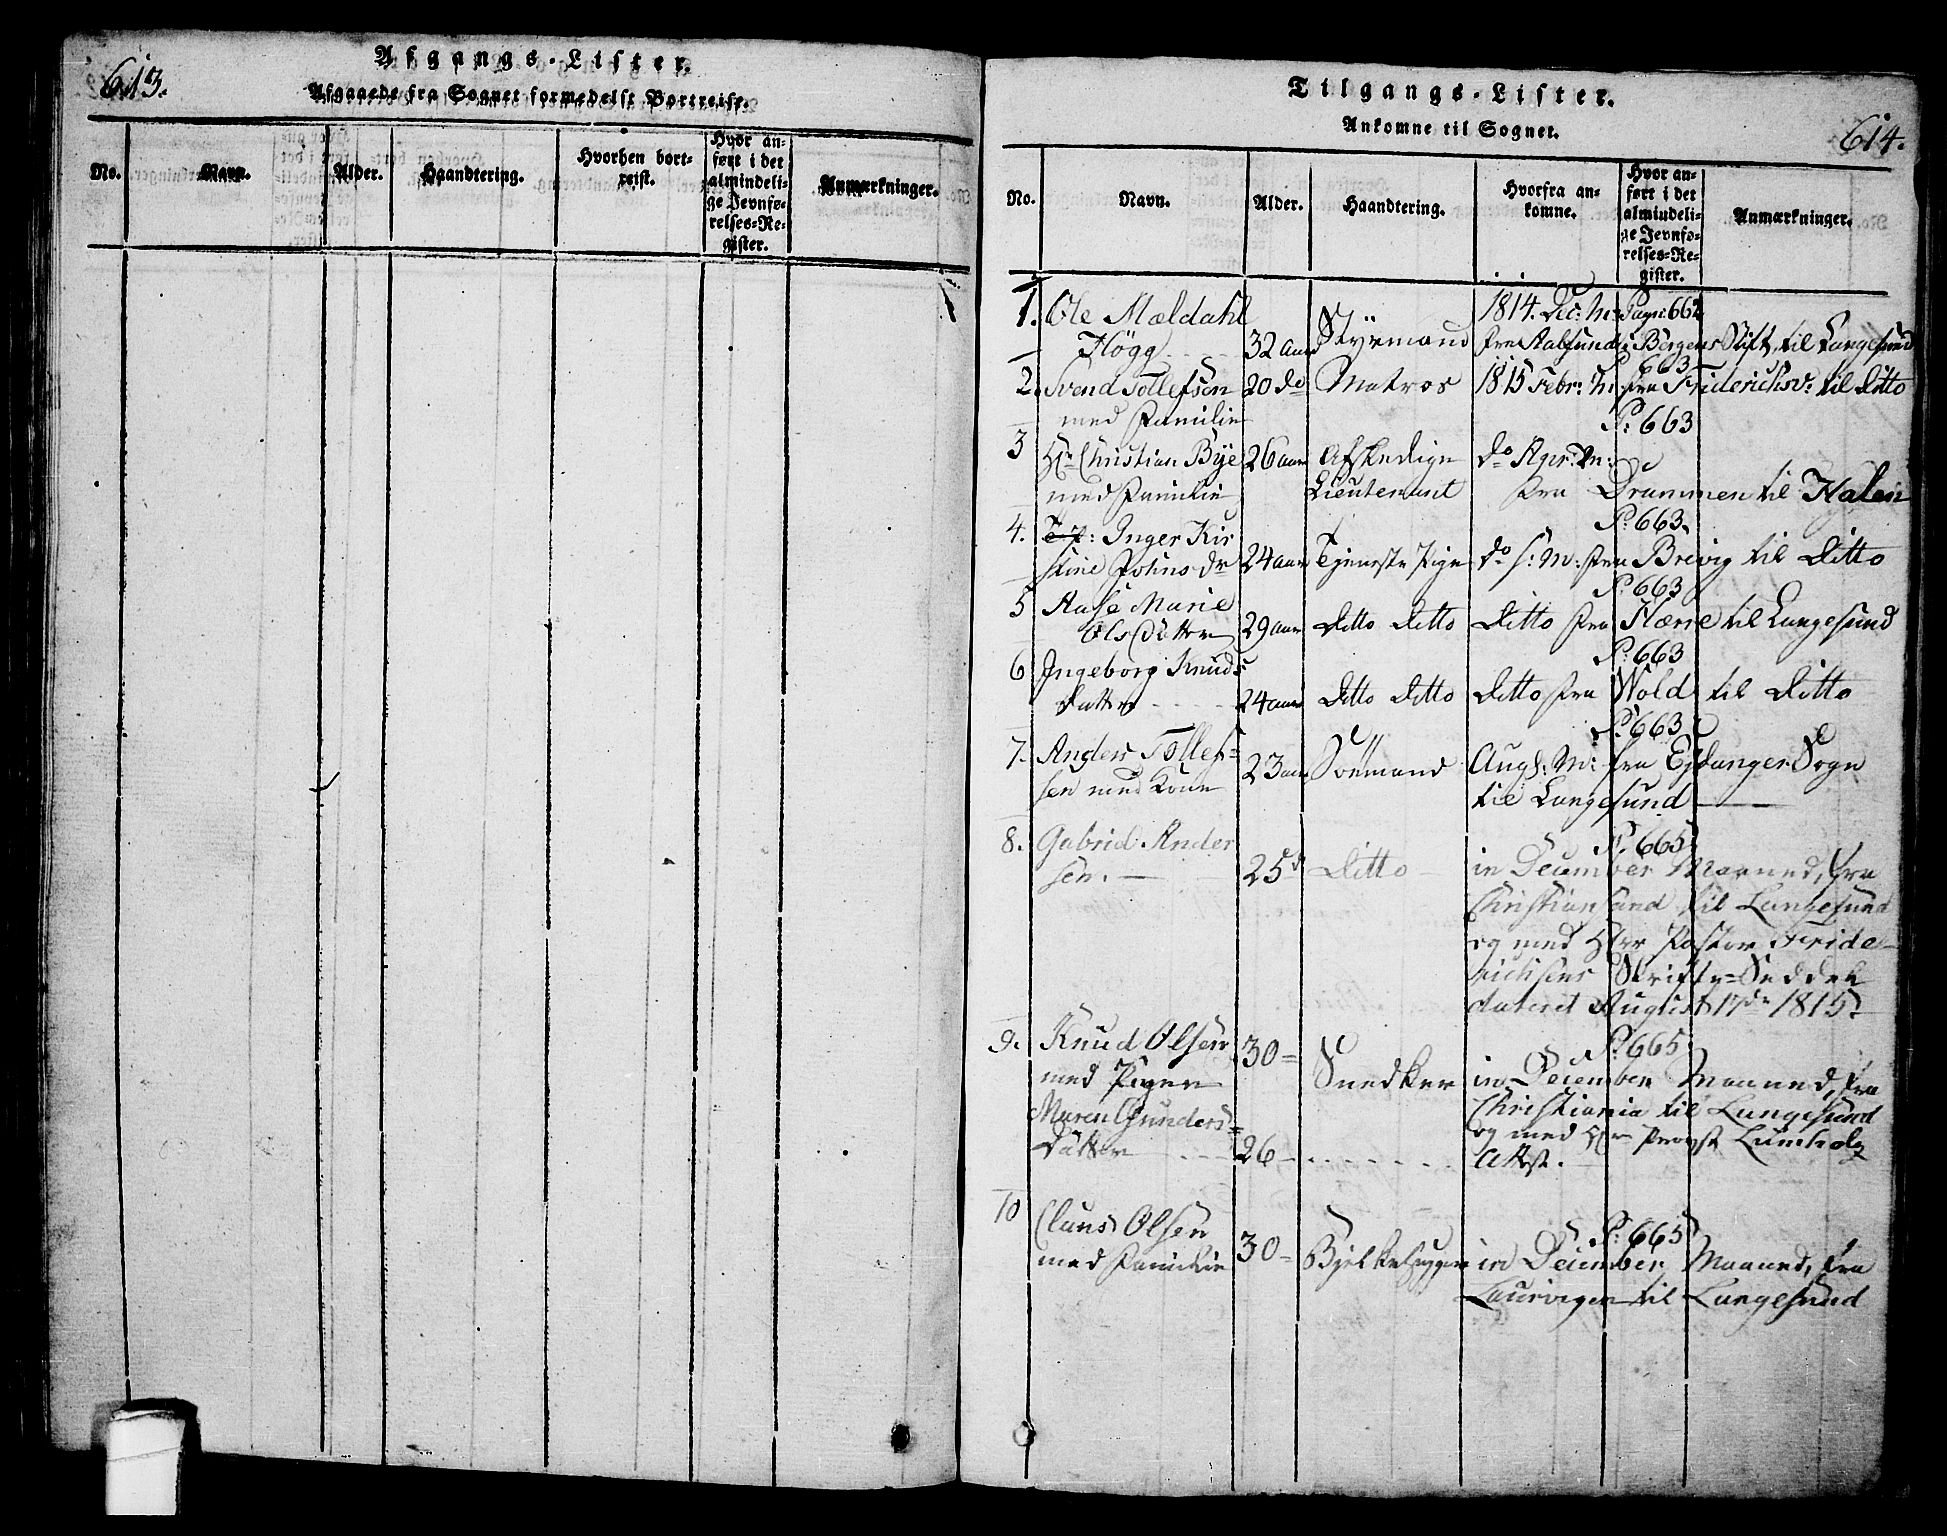 613.
Afgangs-Lister.
Afgaaede fra Sognet formedelst Bortreise.
No.
Navn.
Alder.
Haandtering.
Hvorhen bort-
reist.
Hvor an-
ført i det
almindeli-
ge Jevnfø-
relses-Re-
gister.
Anmærkninger.
Tilgangs-Lister.
Ankomne til Sognet.
614.
No.
Navn.
Alder.
Haandtering.
Hvorfra an-
komne.
Hvor an-
ført i det
almindeli-
ge Jevnfø-
relses-Re-
gister.
Anmærkninger.
1. Ole Mældahl 1814. Dec: M: Pagn: 662
Högg 32 aar Styrmand fra Aalsund i Bergens Stift, til Langesund
P: 663
2. Svend Tollefsen 20 do Matros 1815 Febr: M: fra Friderichsv: til ditto
med Familie P: 663
3 Hr Christian Bye 26 aar Afskediget do Apr: M:
med Familie Lieutenant fra Drammen til Halen
P: 663
4. Inger Kir
stine Johns dr 24 aar Tjeneste Pige do s: M: fra Brevig til ditto
P: 663
5 Aase Marie
Olsdatter 29 aar ditto ditto ditto fra Herre til Langesund
P: 663
6 Ingeborg Knuds
datter 24 aar ditto ditto ditto fra Wold til ditto
P: 663
7. Anders Tollef=
sen med Kone 23 aar Söemand Augs: M: fra Eidanger Sogn
til Langesund
P: 665
8. Gabriel Ander
sen. 25 d ditto in December Maaned, fra
Christiansand til Langesund
og med Herr Pastor Fride=
richsens Skrifte=Seddel
dateret August 17de 1815
P: 665
9. Knud Olsen 30=
med Pigen Snedker in December Maaned, fra
Maren Gunders= Christiania til Langesund
og med Hr Provst Lumholz
Datter 26 Attest.
10 Claus Olsen P: 665
med Familie 30= Bjelkehugger in December Maaned, fra
Laurvigen til Langesund